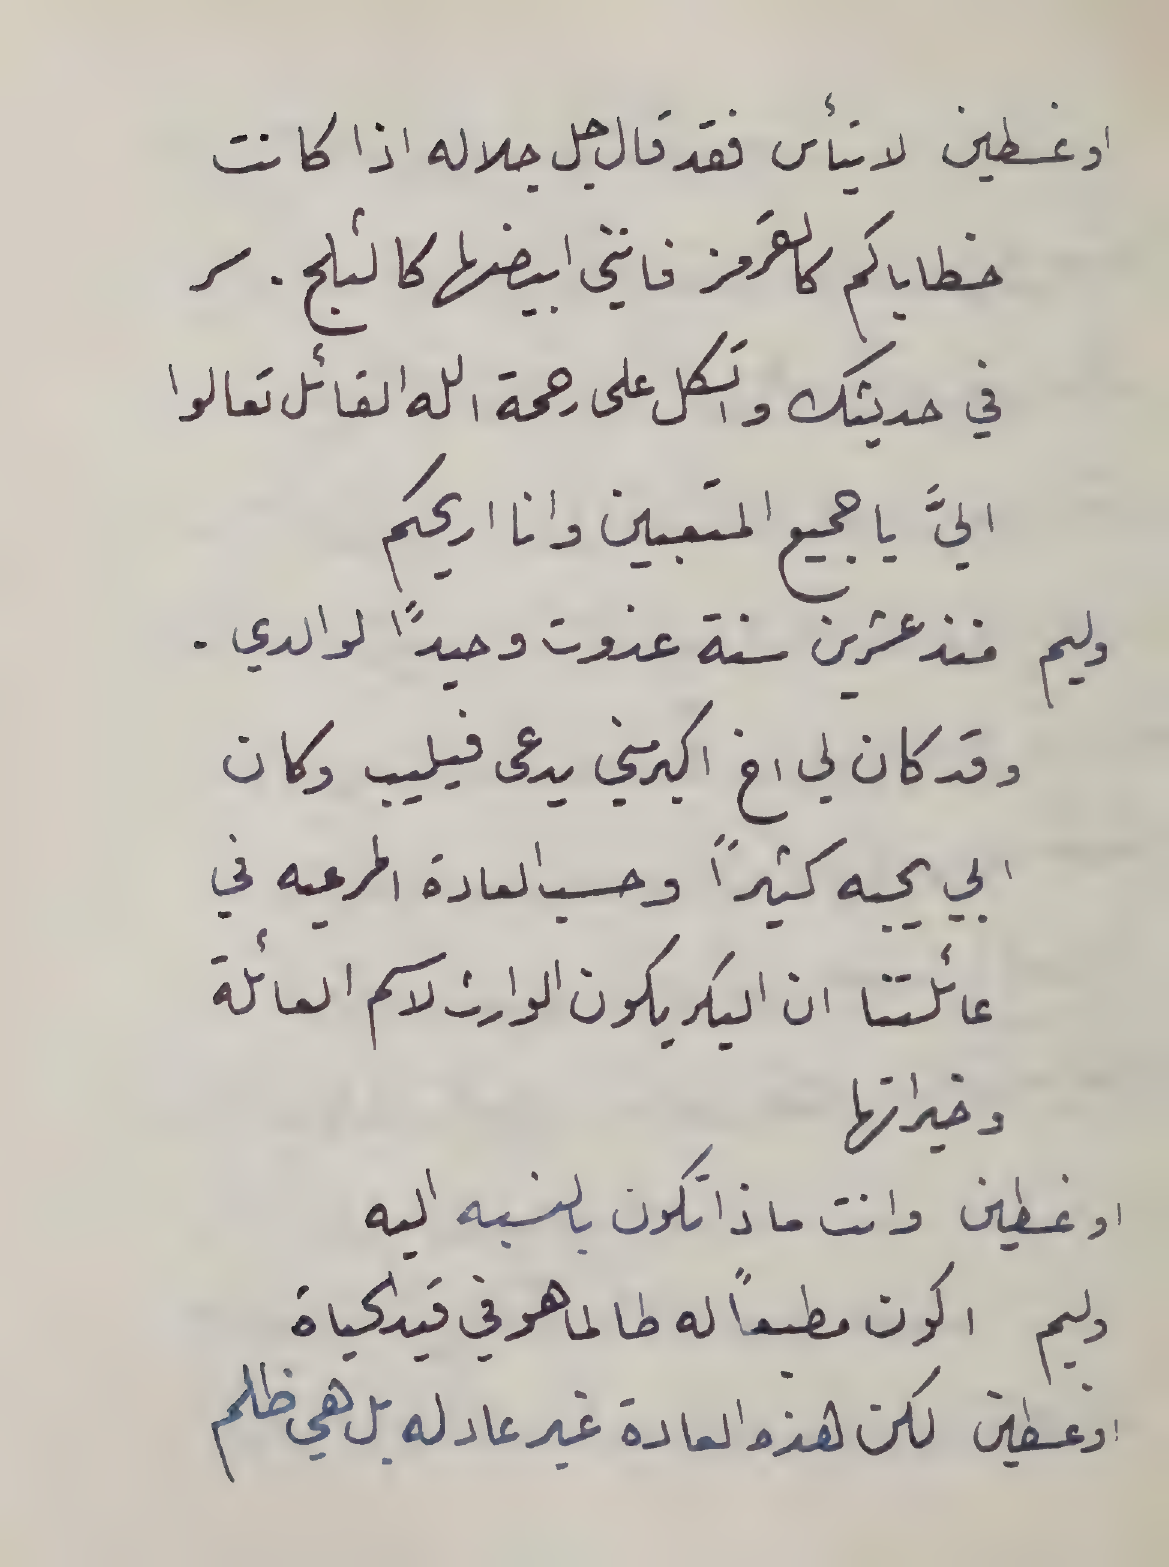 اوغسطين لا تيأس فقد قال جل جلاله اذا كانت
خطاياكم كالقرمز فانني ابيضها كالثلج . سر
في حديثك واتكل على رحمة الله القائل تعالوا
اليَّ يا جميع المتعبين وانا اريحكم
وليم منذ عشرين سنة غذوت وحيدًا لوالدي .
وقد كان لي اخ اكبر مني يدعى فيليب وكان
ابي يحبه كثيرًا وحسب العادة المرعيه في
عائلتنا ان البكر يكون الوارث لاسم العائلة
وخيراتها
اوغسطين وانت ماذا تكون بالنسبه اليه
وليم اكون مطيعاً له طالما هو في قيد الحياة
اوغسطين لكن هذه العادة غير عادله بل هي ظلم